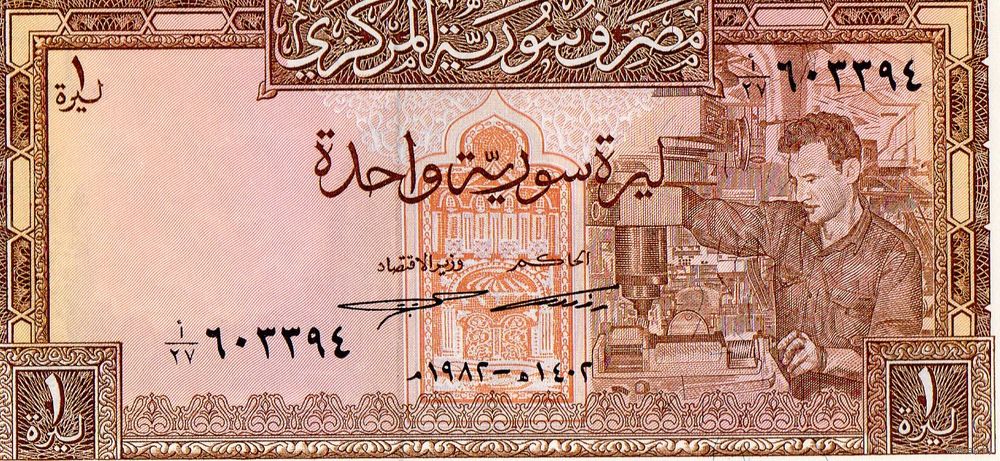 مصرف سورية المركزي
١ ليرة
أ/٢٧ ٦٠٣٣٩٤
ليرة سورية واحدة
الحاكم وزير الاقتصاد
أ/٢٧ ٦٠٣٣٩٤
١٤٠٢ه - ١٩٨٢م
١ ليرة
١ ليرة